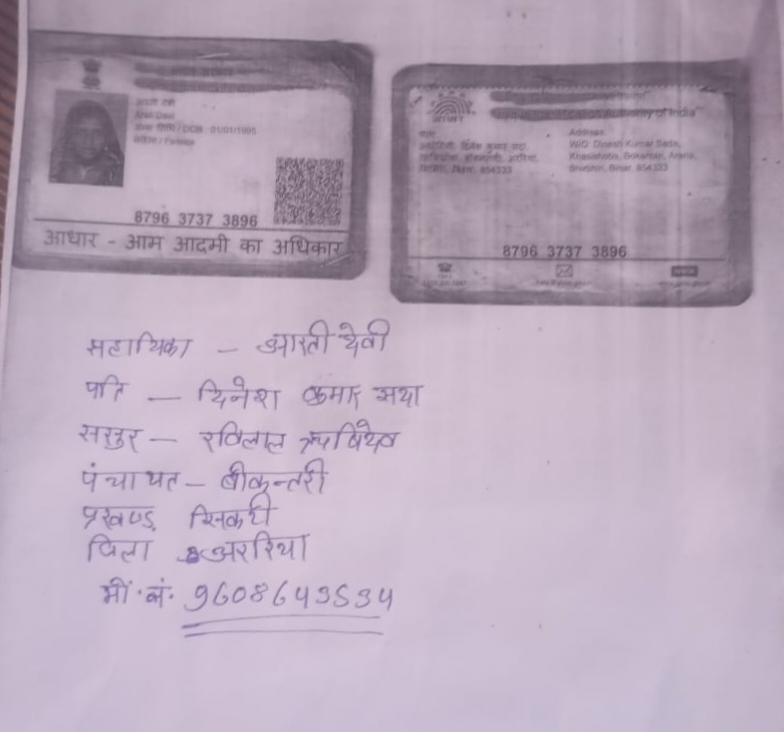 आरती देवी
Arati Devi
जन्म तिथि / DOB : 01/01/1995
महिला / Female
8796 3737 3896
आधार - आम आदमी का अधिकार
Authority of India
Address:
W/O: Dinesh Kumar Sada,
Araria,
Bihar, 854333
बिहार, 854333
8796 3737 3896
सहायिका - आरती देवी
पति - दिनेश कुमार सदा
ससुर - रविलाल ऋषिदेव
पंचायत - बोकन्तरी
प्रखण्ड सिकटी
जिला अररिया
मो. नं. 9608643534